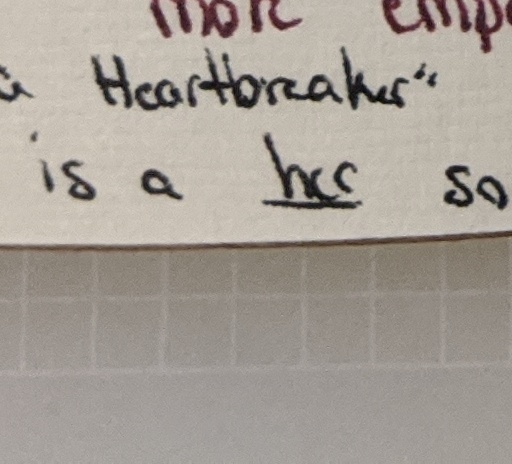 more emp
" Heartbreaker"
is a her so